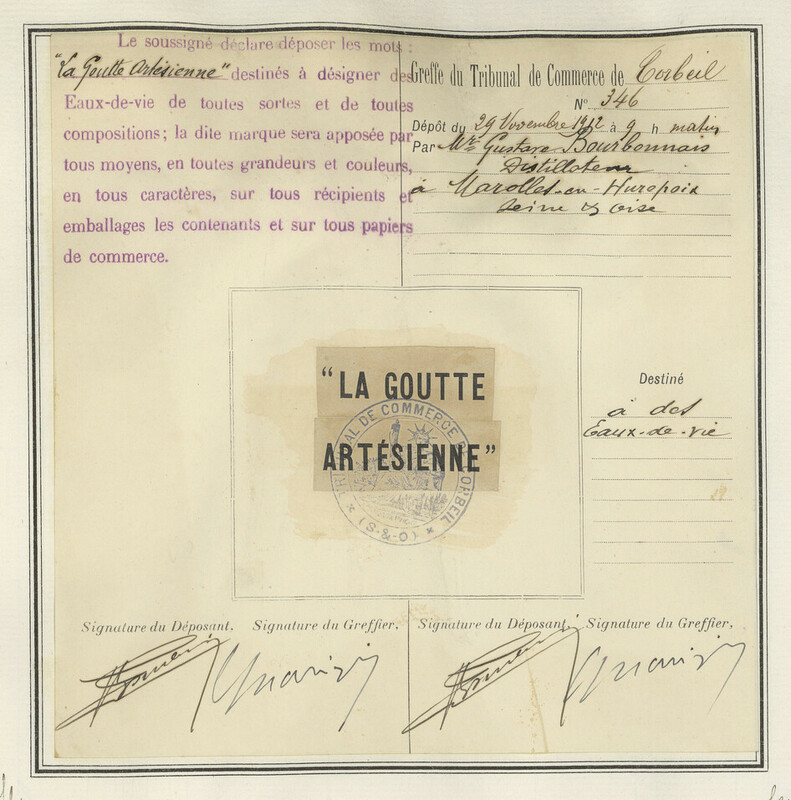 Le soussigné déclare déposer les mots :
"La Goutte Artésienne" destinés à désigner des
Eaux-de-vie de toutes sortes et de toutes
compositions ; la dite marque sera apposée par
tous moyens, en toutes grandeurs et couleurs,
en tous caractères, sur tous récipients et
emballages les contenants et sur tous papiers
de commerce.
Greffe du Tribunal de Commerce de Corbeil
N° 346
Dépôt du 29 Novembre 1912 à 9 h matin
Par Mr Gustave Bourbonnais
Distillateur
à Marolles-en-Hurepoix
Seine & Oise
"LA GOUTTE
ARTÉSIENNE"
TRIBUNAL DE COMMERCE DE CORBEIL
(S-&-O)
Destiné
à des
Eaux-de-vie
Signature du Déposant. Signature du Greffier.
Signature du Déposant. Signature du Greffier.